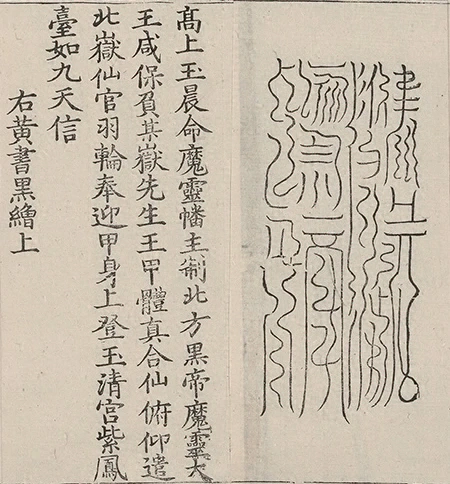 高上玉晨命魔靈幡主制北方黑帝魔靈大
王咸保負某嶽先生王甲體真合仙俯仰遣
北嶽仙官羽輪奉迎甲身上登玉清宮紫鳳
臺如九天信
右黃書黑繒上